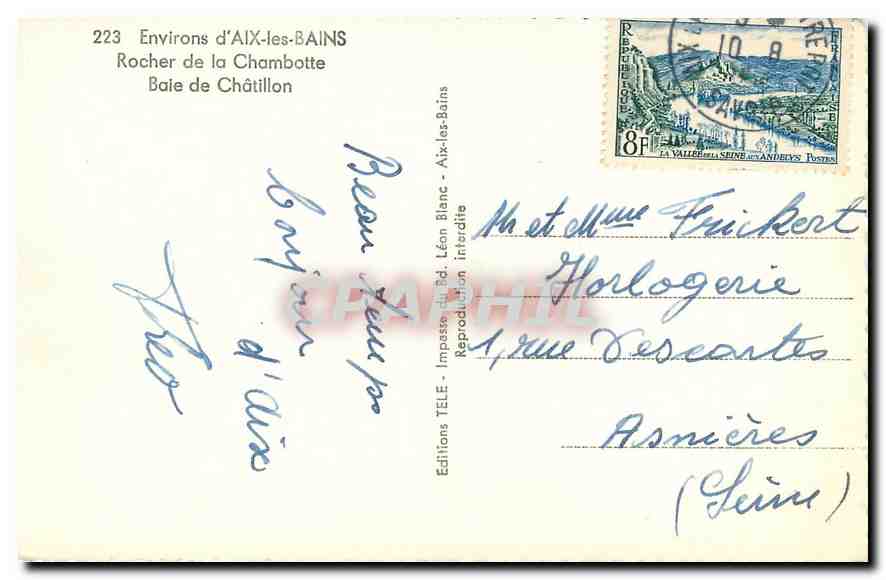 223 Environs d'AIX-les-BAINS
Rocher de la Chambotte
Baie de Châtillon
Beau temps
bonjour
d'Aix
Theo
Editions TELE - Impasse du Bd. Léon Blanc - Aix-les-Bains
Reproduction interdite
REPUBLIQUE FRANÇAISE
8F
LA VALLÉE DE LA SEINE AUX ANDELYS POSTES
10 8
SAVOIE
Mr et Mme Frickert
Horlogerie
1, rue Descartes
Asnières
(Seine)
CPAPHIL